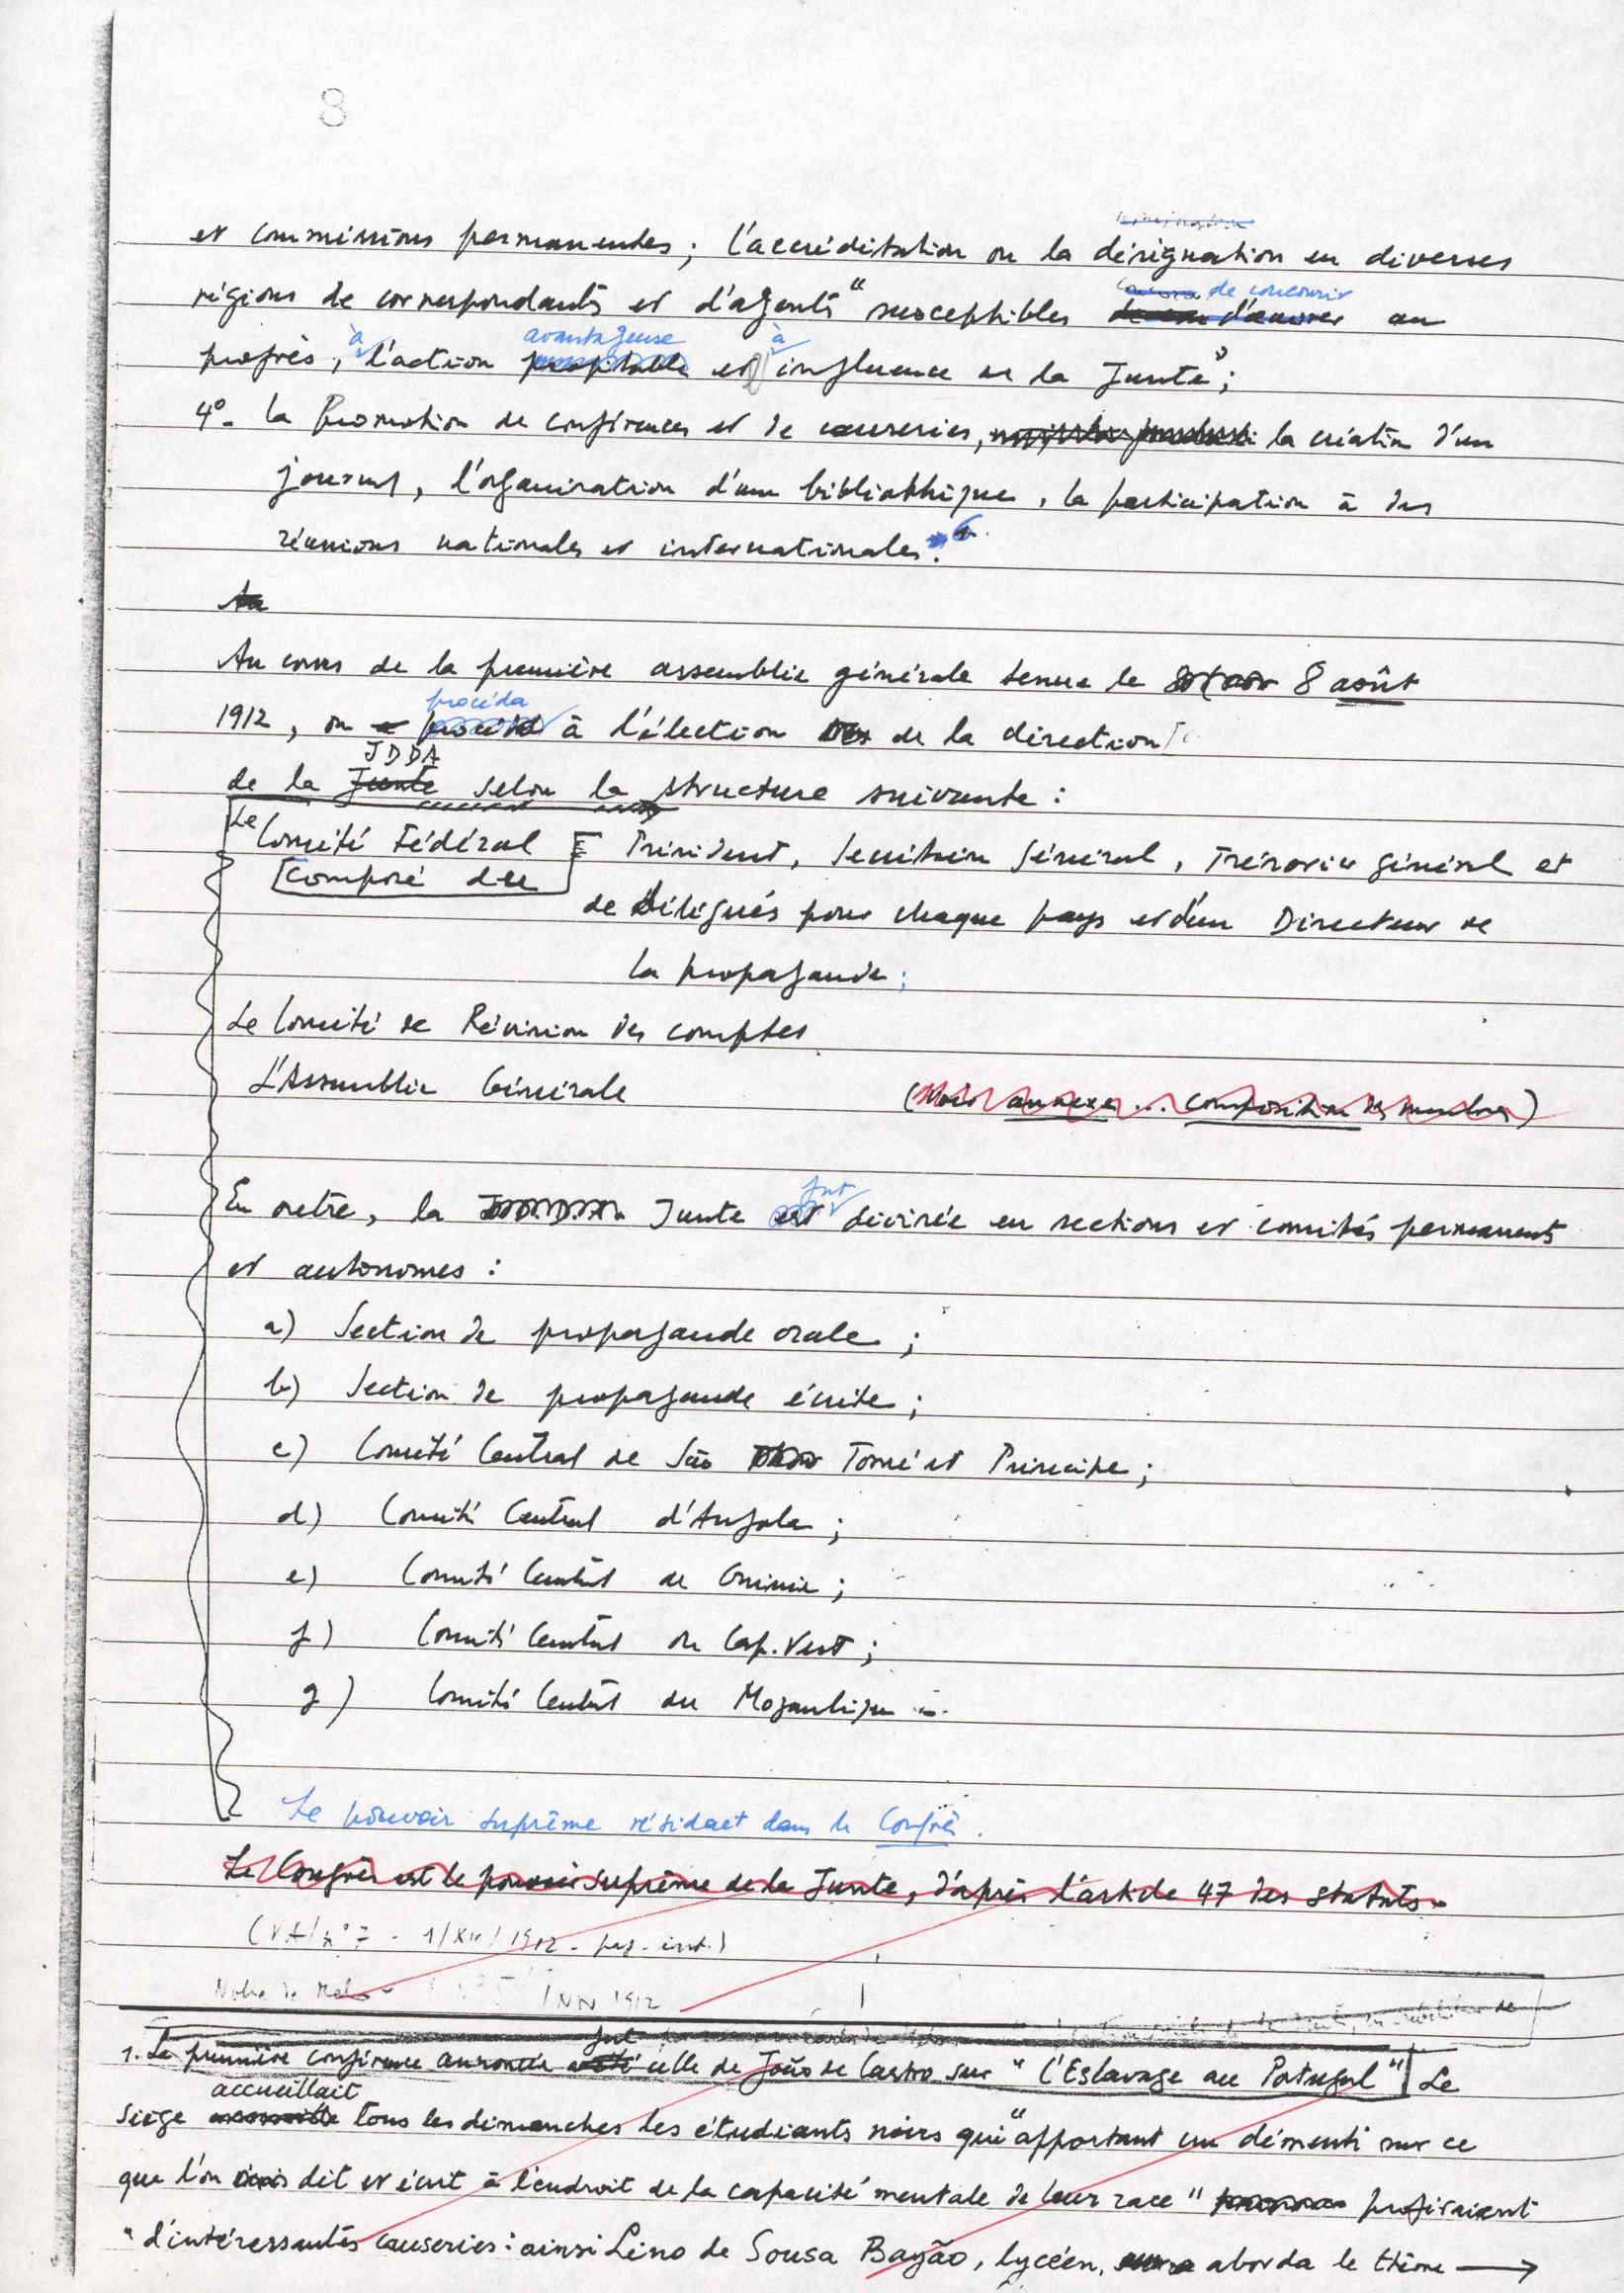 8
et commissions permanentes ; l'accréditation ou la désignation en diverses
de concourir
régions de correspondants et d'agents "susceptibles au
à avantageuse à
progrès, l'action profitable et influence de la Junte" ;
4º - La Promotion de conférences et de causeries, la création d'un
journal, l'organisation d'une bibliothèque, la participation à des
réunions nationales et internationales. 6
Au
Au cours de la première assemblée générale tenue le 8 août
procéda
1912, on à l'élection de la direction
JDDA
de la Junte selon la structure suivante :
Le Comité Fédéral Président, Secrétaire Général, Trésorier général et
composé du
de Délégués pour chaque pays et d'un Directeur de
la propagande ;
Le Comité de Révision des comptes
L'Assemblée Générale (Voir annexe ... composition des membres)
fut
En outre, la Junte est divisée en sections et comités permanents
et autonomes :
a) Section de propagande orale ;
b) Section de propagande écrite ;
c) Comité Central de São Tomé et Principe ;
d) Comité Central d'Angola ;
e) Comité Central de Guinée ;
f) Comité Central du Cap-Vert ;
g) Comité Central du Mozambique .
Le pouvoir suprême résidait dans le Congrès.
Le Congrès est le pouvoir suprême de la Junte, d'après l'article 47 des statuts.
1/XII/1912
1912
fut
1. La première conférence annoncée celle de João de Castro sur "L'Esclavage au Portugal" ] Le
accueillait
siège tous les dimanches les étudiants noirs qui "apportant un démenti sur ce
que l'on dit et écrit à l'endroit de la capacité mentale de leur race"
"d'intéressantes causeries : ainsi Lino de Sousa Bayão, lycéen, aborda le thème →